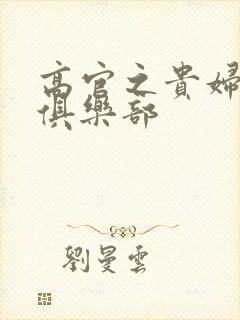 高官之貴婦
俱樂部
劉曼雲